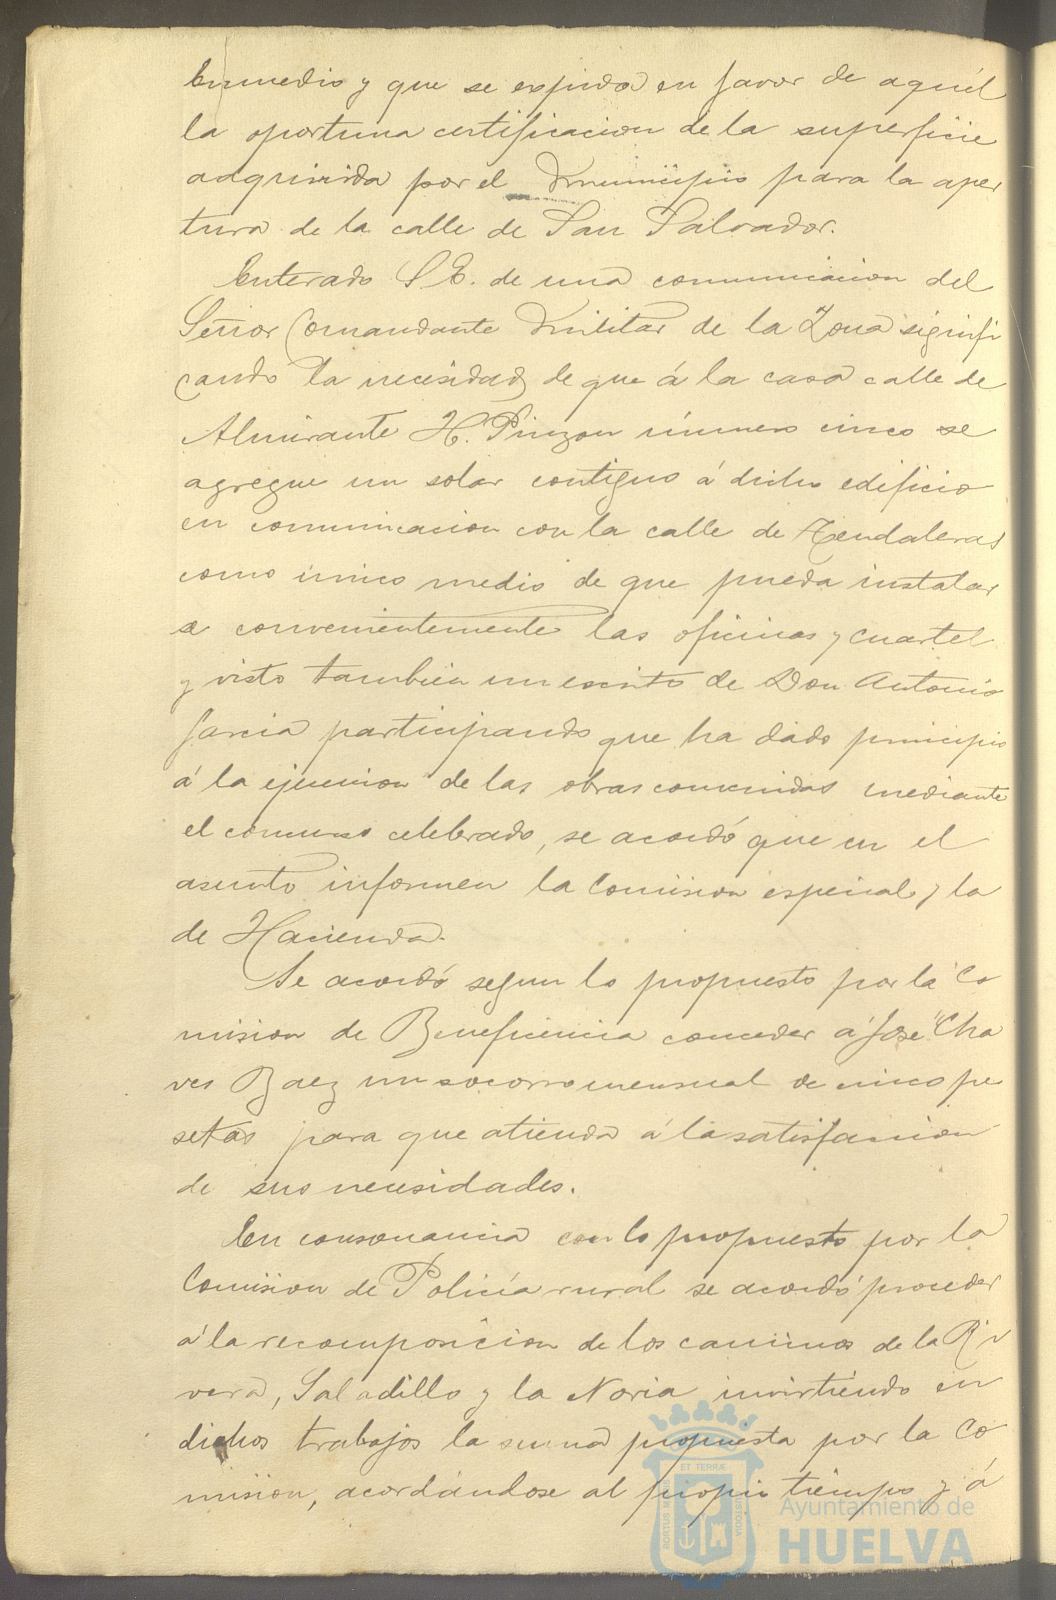 Enmedio y que se expida en favor de aquél
la oportuna certificacion de la superficie
adquirida por el Municipio para la aper
tura de la calle de San Salvador.
Enterado S. E. de una comunicacion del
Señor Comandante Militar de la Zona signifi
cando la necesidad de que á la casa calle de
Almirante H. Pinzon número cinco se
agregue un solar contiguo á dicho edificio
en comunicacion con la calle de Tendaleras
como único medio de que pueda instalar
se convenientemente las oficinas y cuartel
y visto tambien un escrito de Don Antonio
Garcia participando que ha dado principio
á la ejecucion de las obras convenidas mediante
el concurso celebrado, se acordó que en el
asunto informen la Comision especial y la
de Hacienda.
Se acordó segun lo propuesto por la Co
mision de Beneficencia conceder á José Cha
ves Baez un socorro mensual de cinco pe
setas para que atienda á la satisfaccion
de sus necesidades.
En consonancia con lo propuesto por la
Comision de Policía rural se acordó proceder
á la recomposicion de los caminos de la Ri
vera, Saladillo y la Noria invirtiendo en
dichos trabajos la suma propuesta por la Co
mision, acordándose al propio tiempo y á
ET TERRÆ
PORTUS MARIS
CUSTODIA
Ayuntamiento de
HUELVA